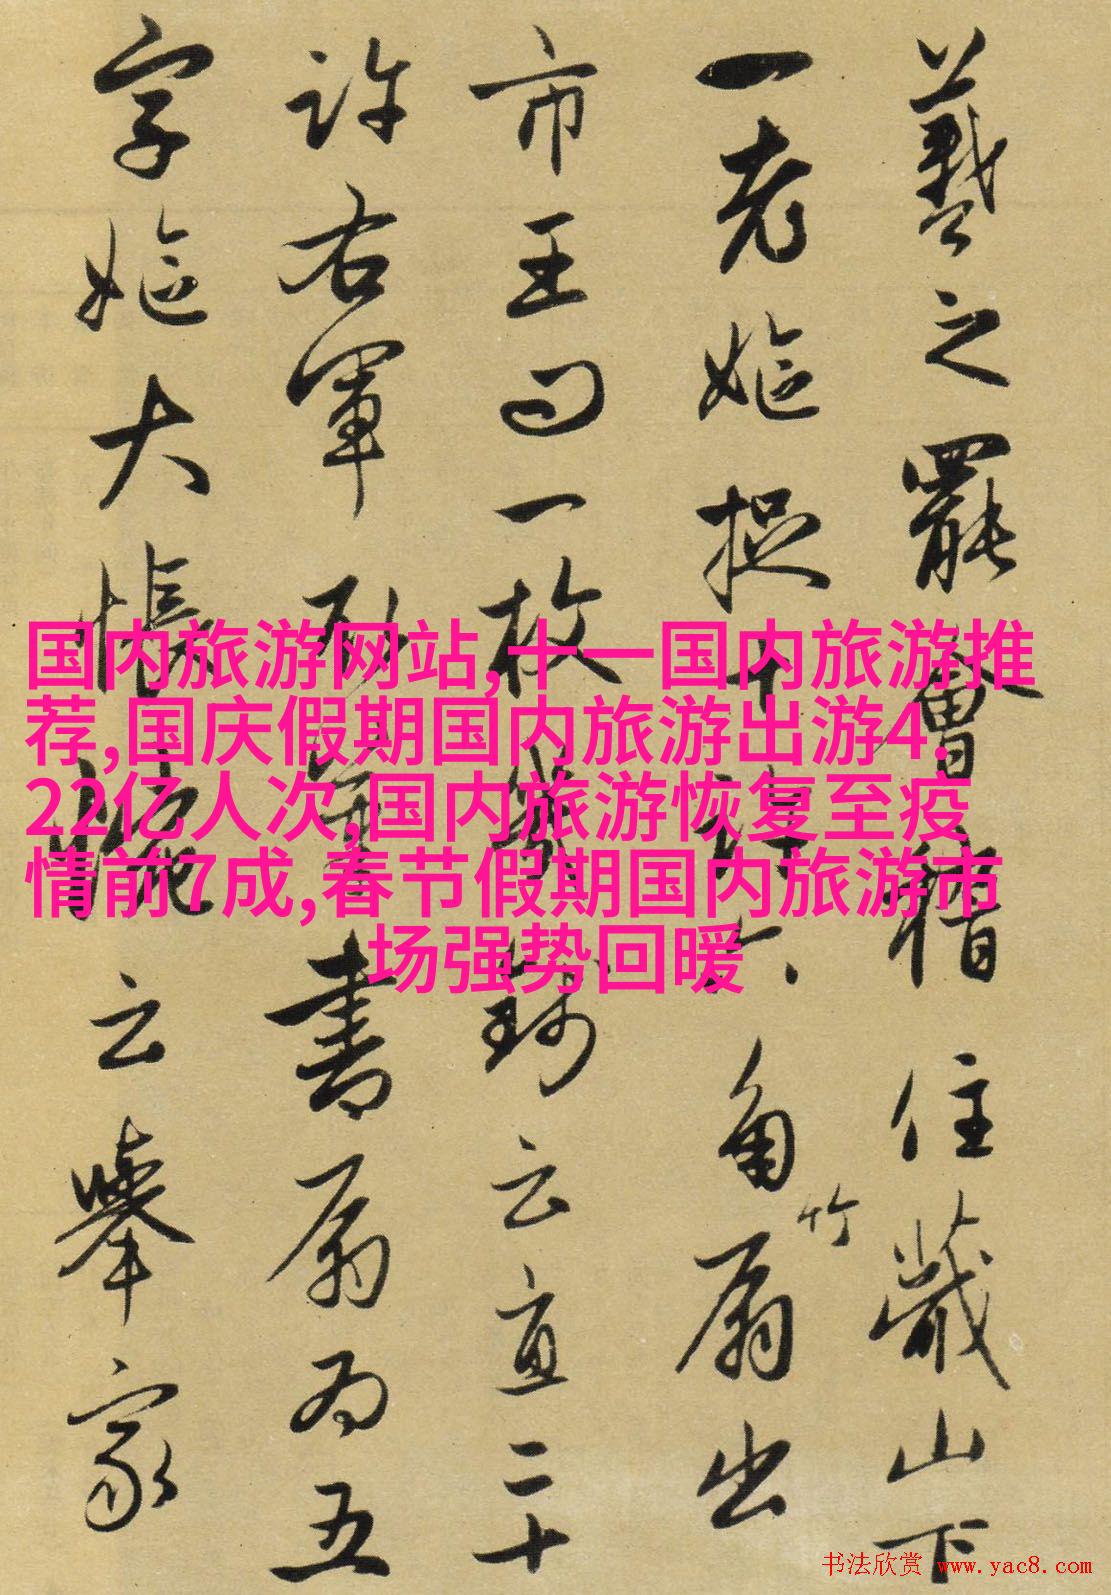 羲之罷會稽住蕺山下
一老嫗捉十許六角竹扇出
市王問一枚幾錢云直二十
許右軍取筆書扇為五
字嫗大悵惋云舉家
国内旅游网站,十一国内旅游推
荐,国庆假期国内旅游出游4.
22亿人次,国内旅游恢复至疫
情前7成,春节假期国内旅游市
场强势回暖
书法欣赏 www.yac8.com